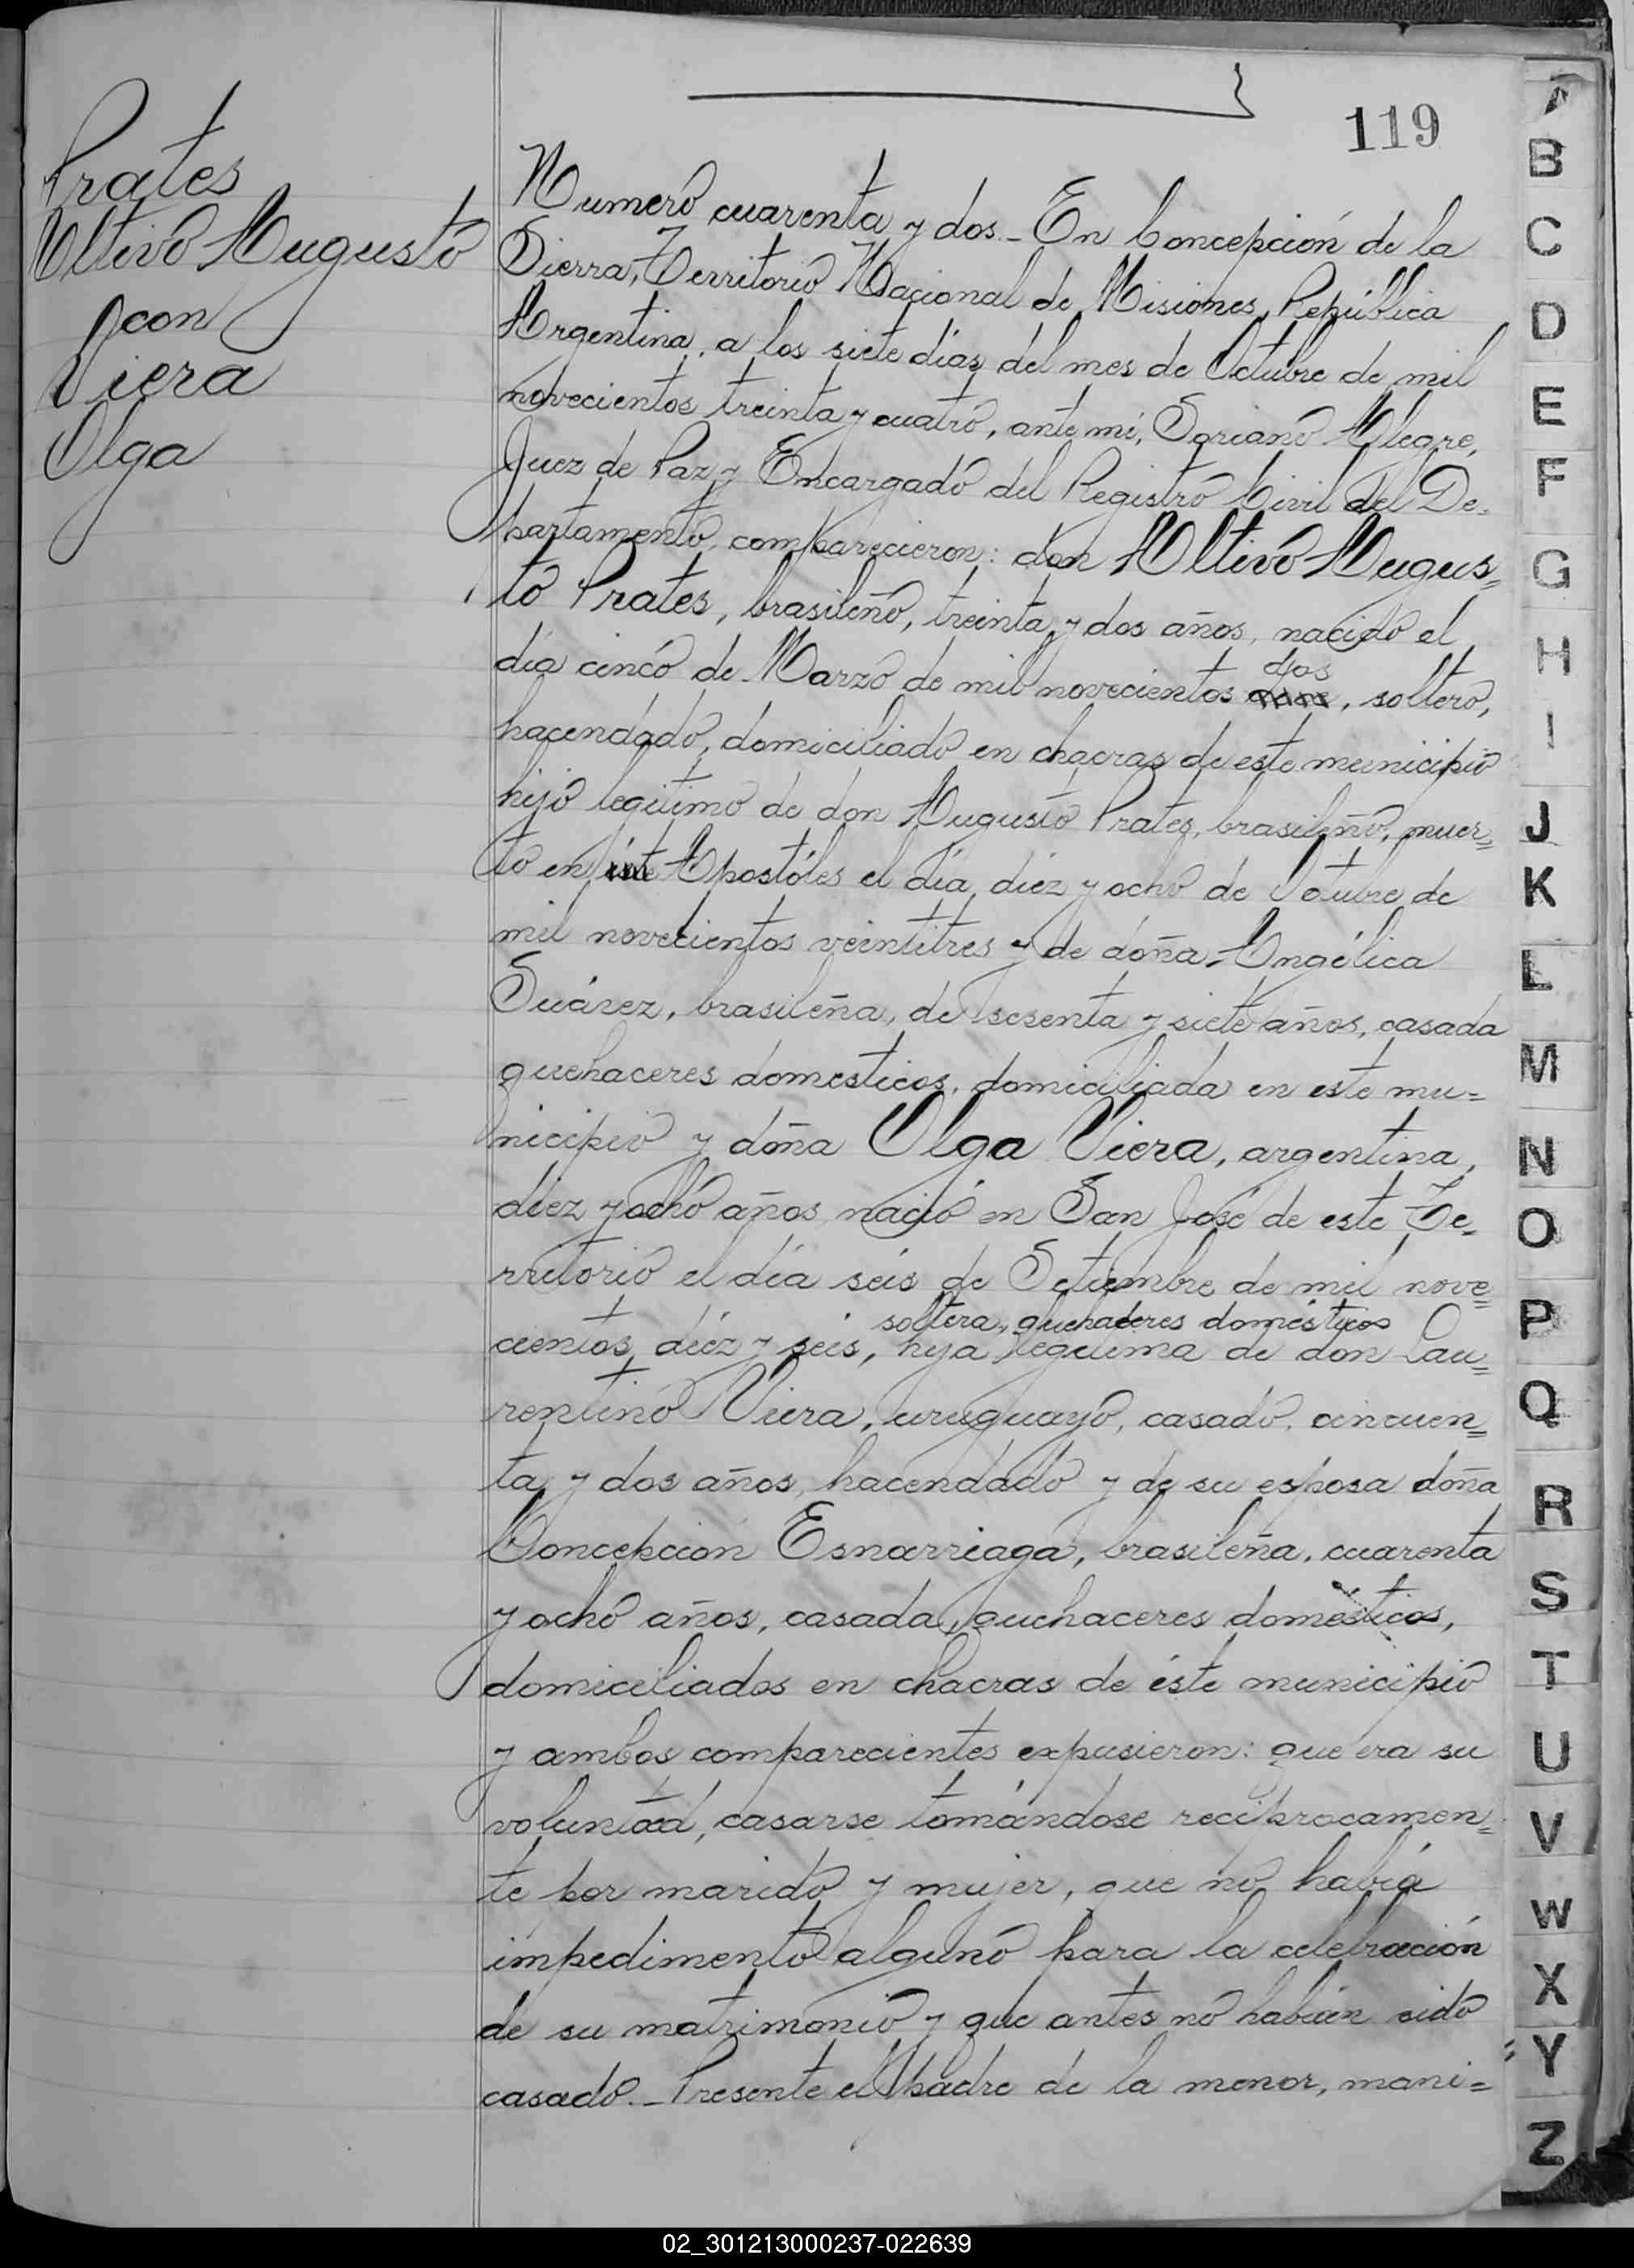 119
Prates
Altivo Augusto
con
Viera
Olga
Numero cuarenta y dos.- En Concepción de la
Sierra, Territorio Nacional de Misiones, República
Argentina, a los siete días del mes de Octubre de mil
novecientos treinta y cuatro, ante mí, Soriano Alegre,
Juez de Paz y Encargado del Registro Civil del De-
partamento, comparecieron: don Altivo Augus=
to Prates, brasileño, treinta y dos años, nacido el
día cinco de Marzo de mil novecientos dos, soltero,
hacendado, domiciliado en chacras de este municipio
hijo legítimo de don Augusto Prates, brasileño, muer=
to en Apostóles el día diéz y ocho de Octubre de
mil novecientos veintitres y de doña Angélica
Suárez, brasileña, de sesenta y siete años, casada
quehaceres domesticos, domiciliada en este mu=
nicipio y doña Olga Viera, argentina,
diez y ocho años, nació en San José de este Te-
rritorio el día seis de Setiembre de mil nove=
soltera, quehaceres domésticos
cientos diéz y seis, hija legitima de don Lau=
rentino Viera, uruguayo, casado, cincuen=
ta y dos años, hacendado y de su esposa doña
Concepción Esnarriaga, brasileña, cuarenta
y ocho años, casada, quehaceres domésticos,
domiciliados en chacras de éste municipio
y ambos comparecientes expusieron: que era su
voluntad, casarse tomándose reciprocamen=
te por marido y mujer, que no había
impedimento alguno para la celebración
de su matrimonio y que antes no habían sido
casado.- Presente el padre de la menor, mani=
A
B
C
D
E
F
G
H
I
J
K
L
M
N
O
P
Q
R
S
T
U
V
W
X
Y
Z
02_301213000237-022639